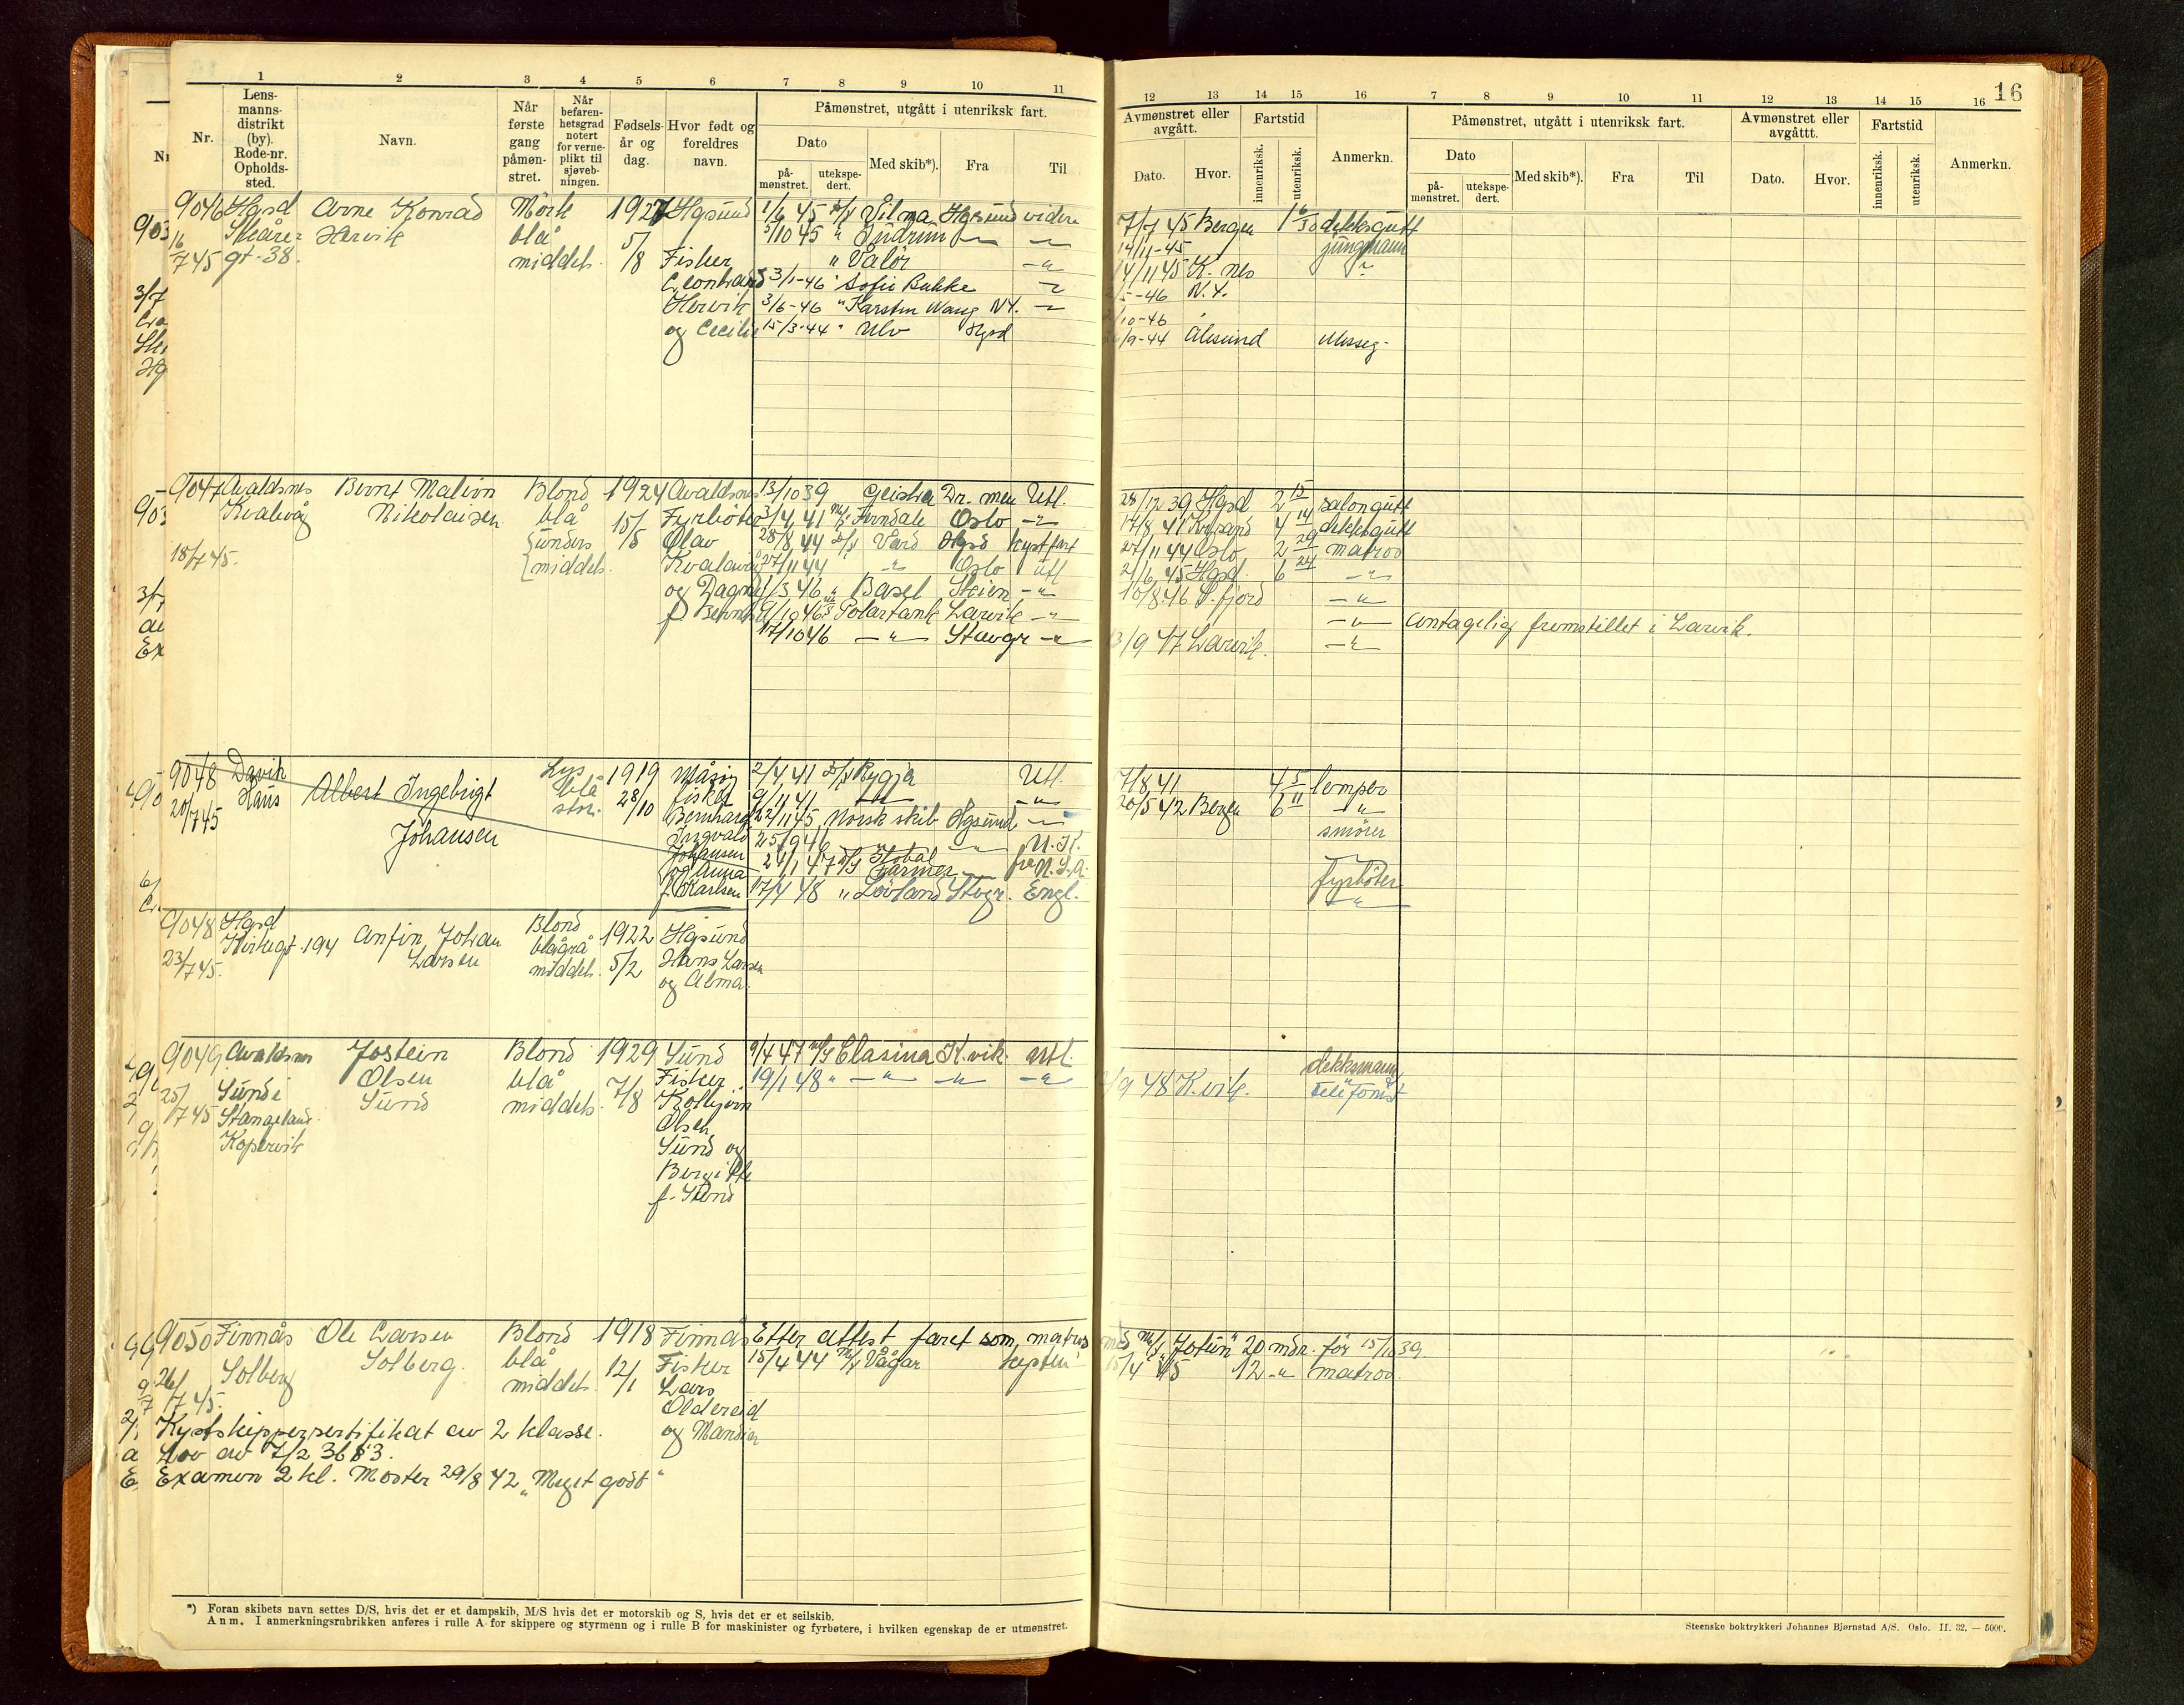 16
1 2 3 4 5 6 7 8 9 10 11
Nr.
Lens-
manns-
distrikt
(by).
Rode-nr.
Opholds-
sted.
Navn.
Når
første
gang
påmøn-
stret.
Når
befaren-
hetsgrad
notert
for verne-
plikt til
sjøveb-
ningen.
Fødsels-
år og
dag.
Hvor født og
foreldres
navn.
Påmønstret, utgått i utenriksk fart.
Dato
på-
mønstret.
utekspe-
dert.
Med skib*).
Fra
Til
12 13 14 15 16 7 8 9 10 11 12 13 14 15 16
Avmønstret eller
avgått.
Dato.
Hvor.
Fartstid
innenriksk.
utenriksk.
Anmerkn.
Påmønstret, utgått i utenriksk fart.
Dato
på-
mønstret.
utekspe-
dert.
Med skib*).
Fra
Til
Avmønstret eller
avgåttt.
Dato.
Hvor.
Fartstid
innenriksk.
utenriksk.
Anmerkn.
9046 Hgsd Arne Konrad Mörk 1927 Hgsund 1/6 45 D/S Vilma Hgsund videre 7/7 45 Bergen dekksgutt
16/7 45 Skåre- Hervik blå 5/8 5/10 45 " Gudrun 14/11-45 jungmann
gt. 38. middels. Fisker " Valör -"- 14/11 45 K. nes
Leonhard 3/1-46 Sofie Bakke -46 N.Y.
Hervik 3/6-46 " Karsten Wang N.Y. 10-46
og Cecilie 15/3-44 " Ulv Hgsd /9-44 Ålesund Messeg.
9047 Avaldsnes Bernt Malvin Blond 1924 Avaldsnes 13/10 39 Geisha Dr. men Utl. 28/12 39 Hgsd 2 15 salongutt
Kvalevåg Nikolaisen blå 15/5 Fyrböter 3/4 41 M/S Ferndale Oslo -"- 17/8 41 Kr.sand 4 14 dekksgutt
18/7 45. unders Olav 28/8 44 D/S Vard Hgsd kystfart 27/11 44 Oslo 2 29 matros
middels. Kvalavåg 27/11 44 -"- Oslo utl 21/6 45 Hgsd. 6 24 -"-
og Dagny 1/3 46 " Basel Skien -"- 10/8 46 S.fjord -"-
f. 9/10 46 M/S Polartank Larvik -"- -"- Antagelig fremstillet i Larvik.
17/10 46 -"- Stavgr -"- 13/9 47 Larvik. -"-
9048 Davik Albert Ingebrigt Lys 1919 Måsöy 2/4 41 D/S Rygja Utl. 7/8 41 4 5 lemper
20/7 45 Haus blå 28/10 fisker 9/11 41 -"- 20/5 42 Bergen 6 11 -"-
Johansen stor. Bernhard 22/11 45 Norsk skib Hgsund -"- smörer
Ingvald 25/9 46 -"- U.K.
Johansen 24/1 47 D/S Farmer -"- U.S.A. fyrböter
og Anna
f. Karlsen 17/1 48 " Lövland Stvgr. Engl. -"-
9048 Hgsd Anfin Johan Blond 1922 Hgsund
Kirkegt. 194 Larsen blågrå 5/2 Hans Larsen
23/7 45. middels. og Alma.
9049 Avaldsnes Jostein Blond 1929 Sund 9/4 47 M/S Clasina K.vik. utl. dekksmann
25/7 45 Sund i Olsen blå 7/8 Fisker 19/1 48 " -"- -"- -"- /9 48 K.vik. telefonist
Stangeland Sund middels. Kolbjörn
Kopervik Olsen
Sund og
Bergitte
f. Sund
9050 Finnås Ole Larsen Blond 1918 Finnås Etter attest faret som matros med M/S "Jotun" 20 mdr. før 15/11 39.
26/7 45. Solberg Solberg. blå 12/1 Fisker 15/4 44 M/S Vågar 15/4 45 12 -"- matros.
middels. Lars
Oldereid
og
Kystskippersertifikat av 2 klasse.
Lov av 7/2 36 § 3.
Examen 2 kl. Moster 29/8 42 "Meget godt"
*) Foran skibets navn settes D/S, hvis det er et dampskib, M/S hvis det er motorskib og S, hvis det er et seilskib.
Anm. I anmerkningsrubrikken anføres i rulle A for skippere og styrmenn og i rulle B for maskinister og fyrbøtere, i hvilken egenskap de er utmønstret.
Steenske boktrykkeri Johannes Bjørnstad A/S. Oslo. II. 32. — 5000.